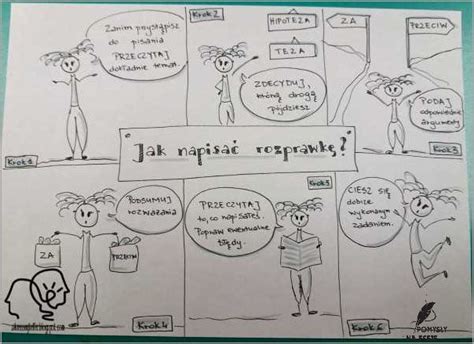 Zanim przystąpisz
do pisania
PRZECZYTAJ
dokładnie temat.
Krok 1
Krok 2
HIPOTEZA
TEZA
ZDECYDUJ,
którą drogą
pójdziesz
ZA
PRZECIW
PODAJ
odpowiednie
argumenty
Krok 3
"Jak napisać rozprawkę?"
PODSUMUJ
rozważania
ZA
PRZECIW
Krok 4
Krok 5
PRZECZYTAJ
to, co napisałeś.
Popraw ewentualne
błędy.
CIESZ SIĘ
dobrze
wykonanym
zadaniem.
Krok 6
POMYSŁY